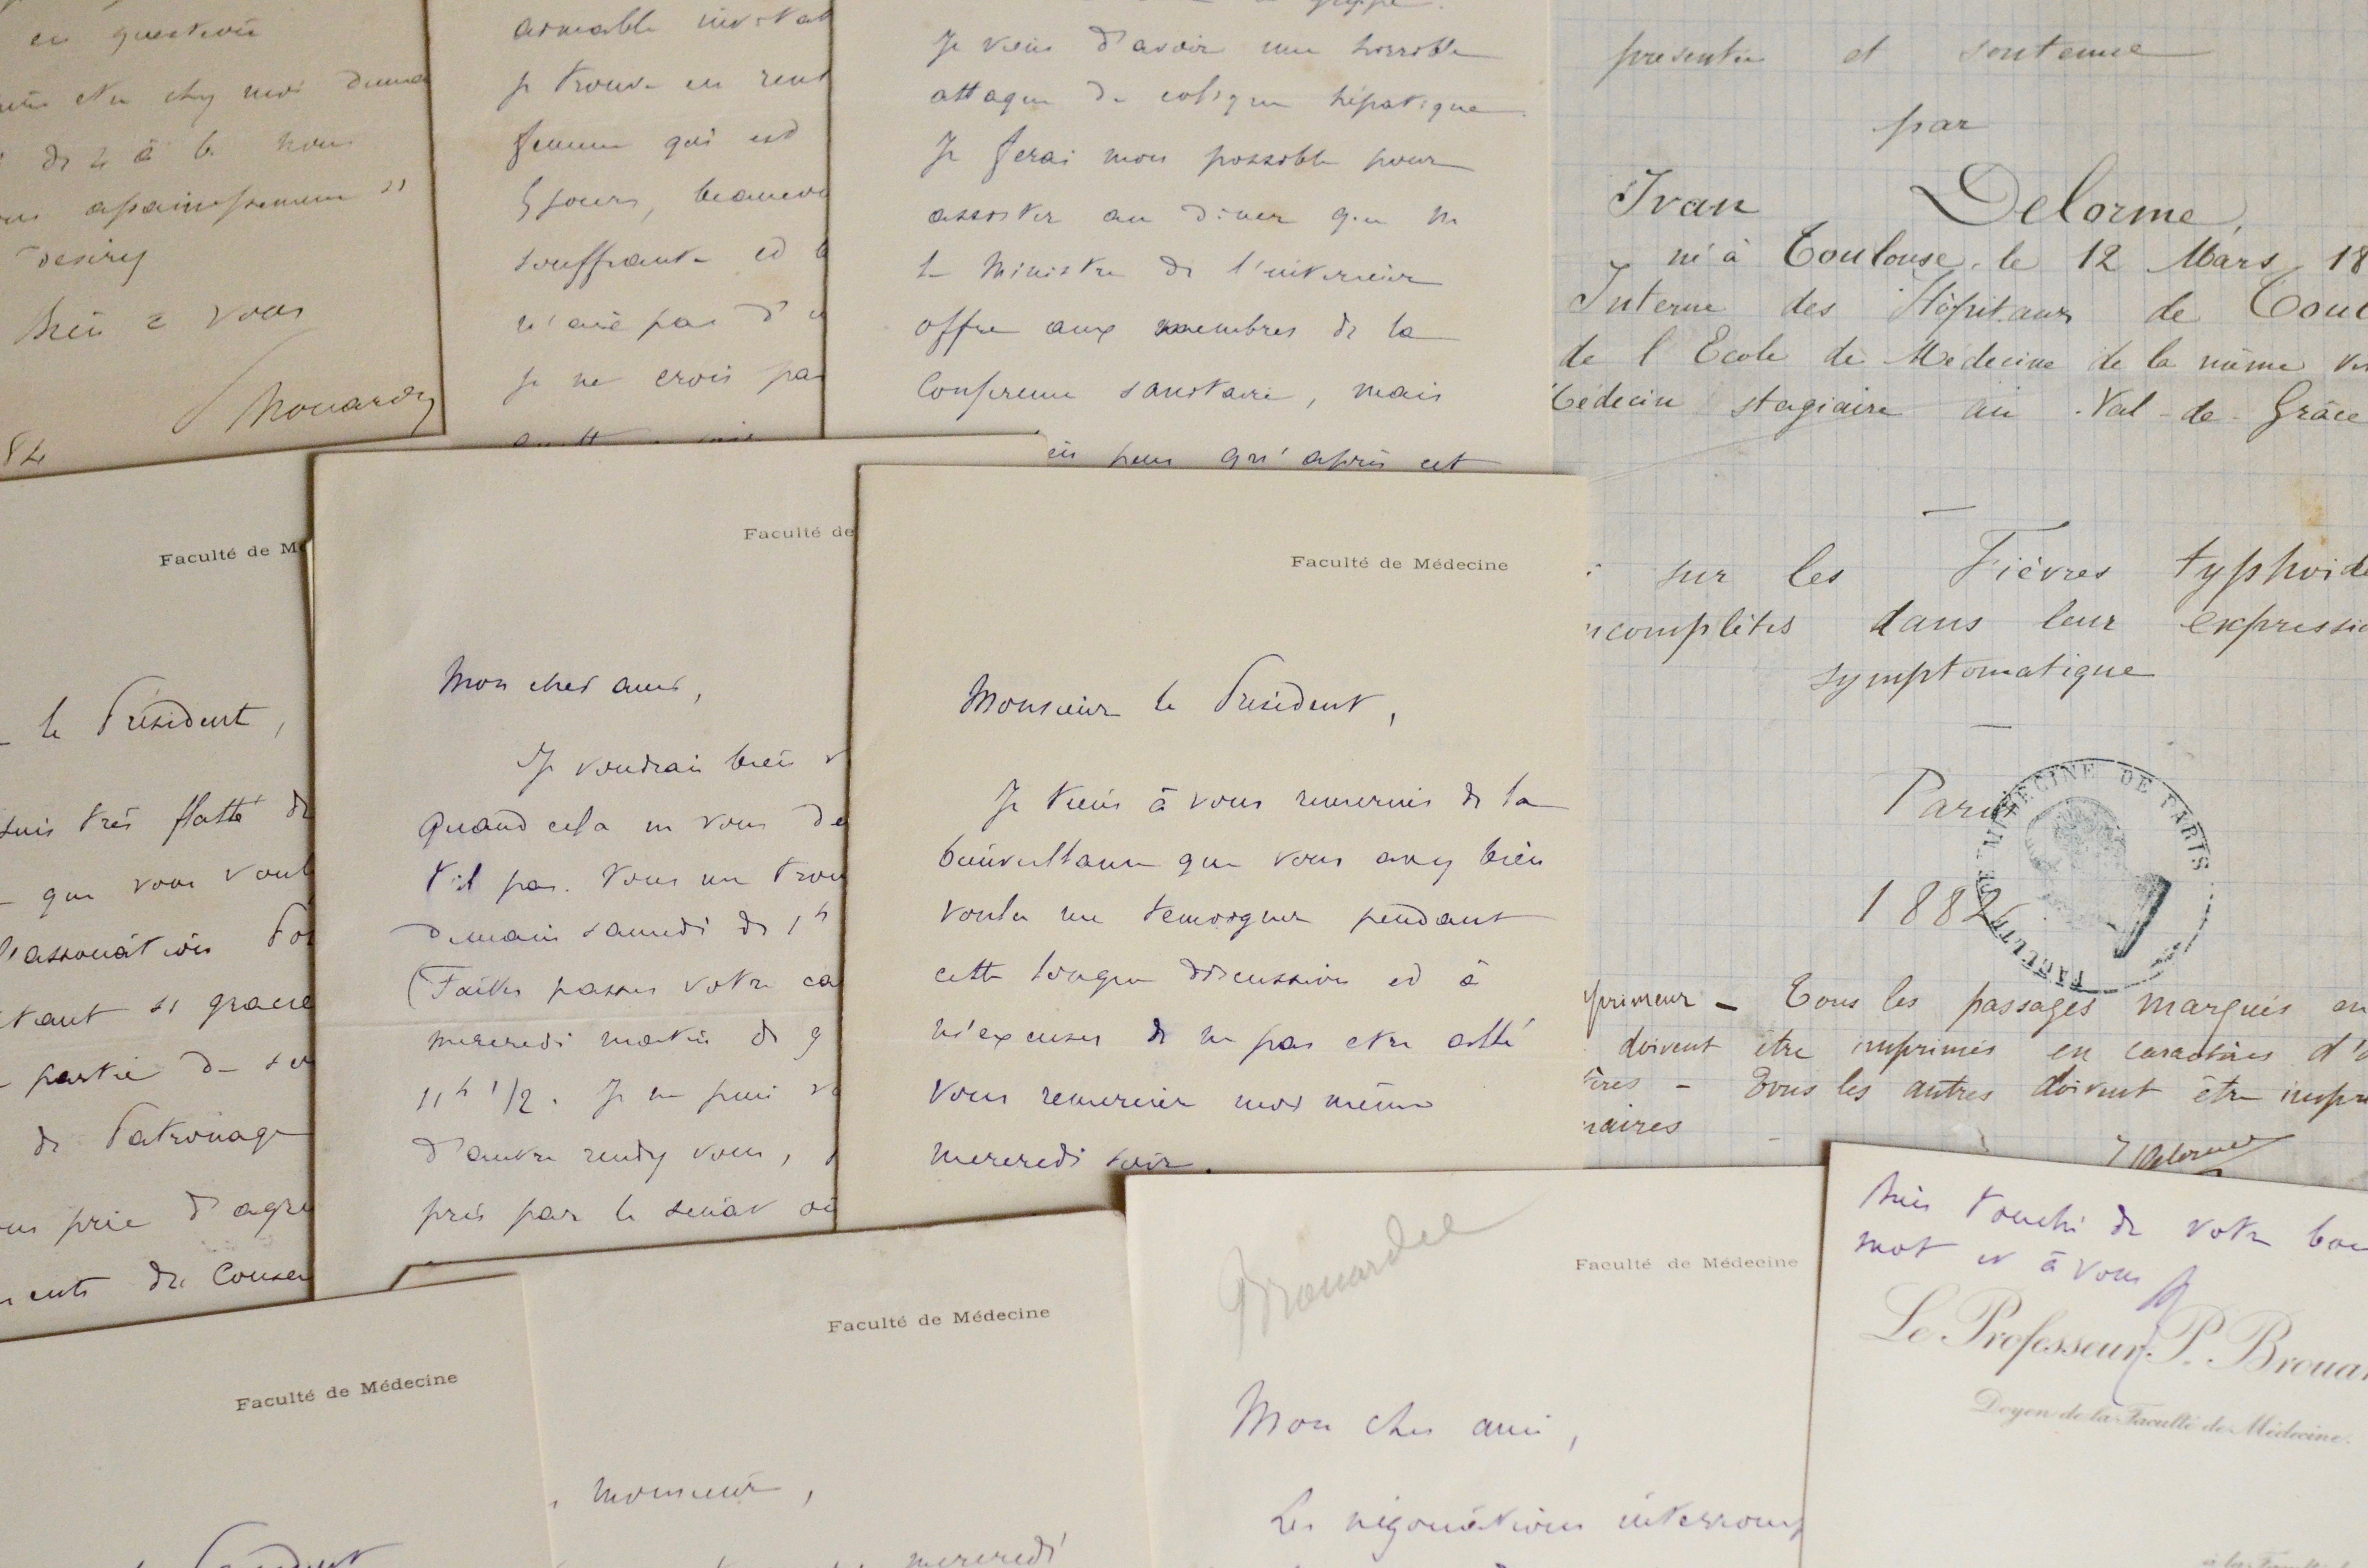 en question
chez moi
de 4 à 6 nous
desirez
bien à vous
Brouardel
84
aimable invitat
je trouve en rent
femme qui est
5 jours, beaucou
souffrante et
n'aie pas d'
je ne crois pas
Je viens d'avoir une horrible
attaque de colique hépatique
Je ferai mon possible pour
assister au diner que m
le Ministre de l'interieur
offre aux membres de la
Conference sanitaire, mais
peur qu'après cet
presentée et soutenue
par
Ivan Delorme,
né à Toulouse, le 12 Mars 18
Interne des Hôpitaux de Toul
de l'Ecole de Médecine de la même
Médecin stagiaire au Val-de-Grâce
sur les Fièvres typhoide
incomplètes dans leur expressio
symptomatique
Paris
1882
FACULTÉ DE MÉDECINE DE PARIS
primeur - Tous les passages marqués en
doivent être imprimés en caractères d'
tères - Tous les autres doivent être impri
naires
Delorme
Faculté de Mé
le Président,
suis très flatté de
que vous voul
l'association
si gracie
partie de
de Patronage
us prie d'agré
ments du Consei
Faculté de
Mon cher ami,
Je voudrais bien
Quand cela ne vous de
t'il pas. Vous me trou
demain samedi de 1h
(Faites passer votre ca
mercredi matin de 9
11h 1/2. Je ne puis
d'autre rendez vous,
pris par le senat où
Faculté de Médecine
Monsieur le Président,
Je tiens à vous remercier de la
bienveillance que vous avez bien
voulu me temoigner pendant
cette longue discussion et à
m'excuser de ne pas etre allé
vous remercier moi même
mercredi soir.
Faculté de Médecine
Président
Faculté de Médecine
Monsieur,
mercredi
Brouardel
Faculté de Médecine
Mon cher ami,
Les négociations interromp
bien touché de votre bon
mot et à vous
Le Professeur P. Brouar
Doyen de la Faculté de Médecine.